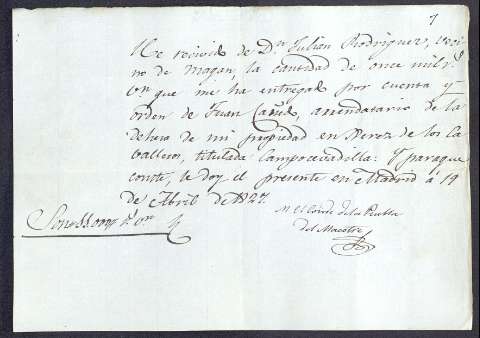 7
He recivido de Dn Julian Rodriguez, veci
no de Magan, la cantidad de once mil
que me ha entregado por cuenta y
orden de Juan Cañed, arrendatario de la
dehesa de mi propiedad en Xerez de los Ca
valleros, titulada: Campoceuadilla: Y para que
conste, le doy el presente en Madrid á 19
de Abril de 827.
Son
M. El Conde de la Puebla
del Maestre